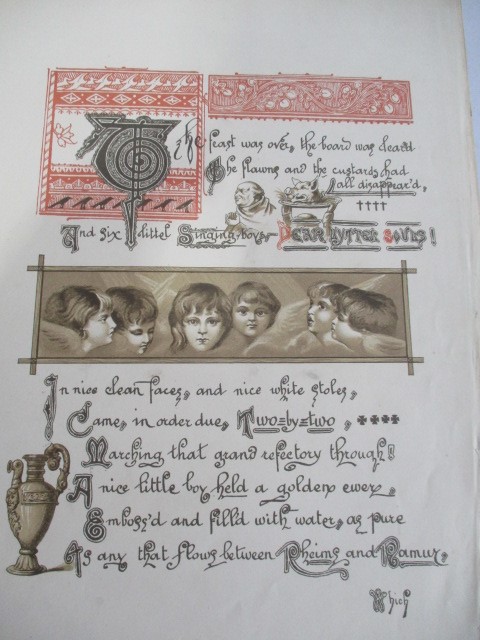 The feast was over, the board was clear'd
The flawns and the custards had
all disappear'd,
And six little Singing-boys,— DEAR LYTTEL SOULS!
In nice clean faces, and nice white stoles,
Came, in order due, Two=by=two,
Marching that grand refectory through!
A nice little boy held a golden ewer,
Emboss'd and fill'd with water, as pure
As any that flows between Rheims and Namur,
Which